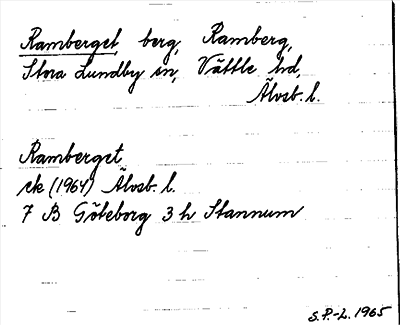 Ramberget, berg, Ramberg,
Stora Lundby sn, Vättle hd,
Älvsb. l.
Ramberget
ek (1964) Älvsb. l.
7 B Göteborg 3 h Stannum
S.P.-L. 1965